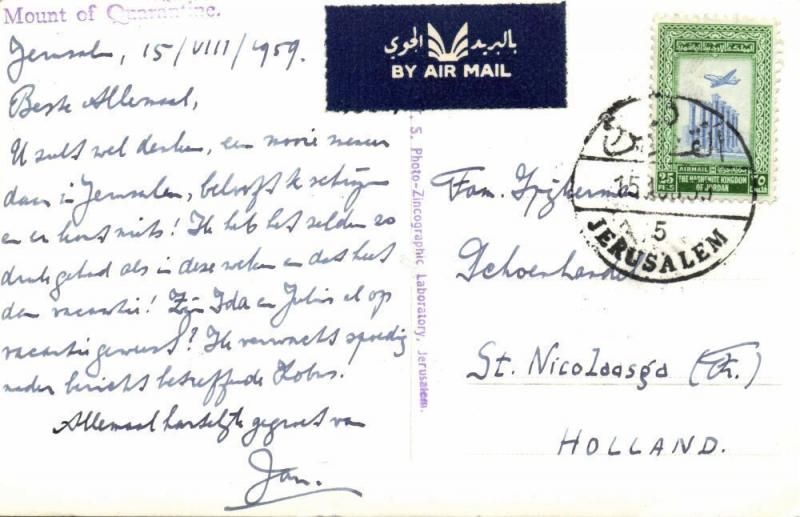 Mount of Quarantine.
Jerusalem, 15/VIII/1959.
Beste Allemaal,
U zult wel denken, een mooie meneer
daar in Jerusalem, belooft te schrijven
en er komt niets! Ik heb het zelden zo
druk gehad als in deze weken en dat heet
dan vacantie! Zijn Ida en Julis al op
vacantie geweest? Ik verwacht spoedig
nader bericht betreffende Kobus.
Allemaal hartelijk gegroet van
Jan.
بالبريد الجوي
BY AIR MAIL
S. Photo-Zincographic Laboratory, Jerusalem.
AIRMAIL
25
FILS
THE HASHEMITE KINGDOM
OF JORDAN
٢٥
القدس
5
JERUSALEM
Fam.
Schoenhandel
St. Nicolaasga (Fr.)
HOLLAND.